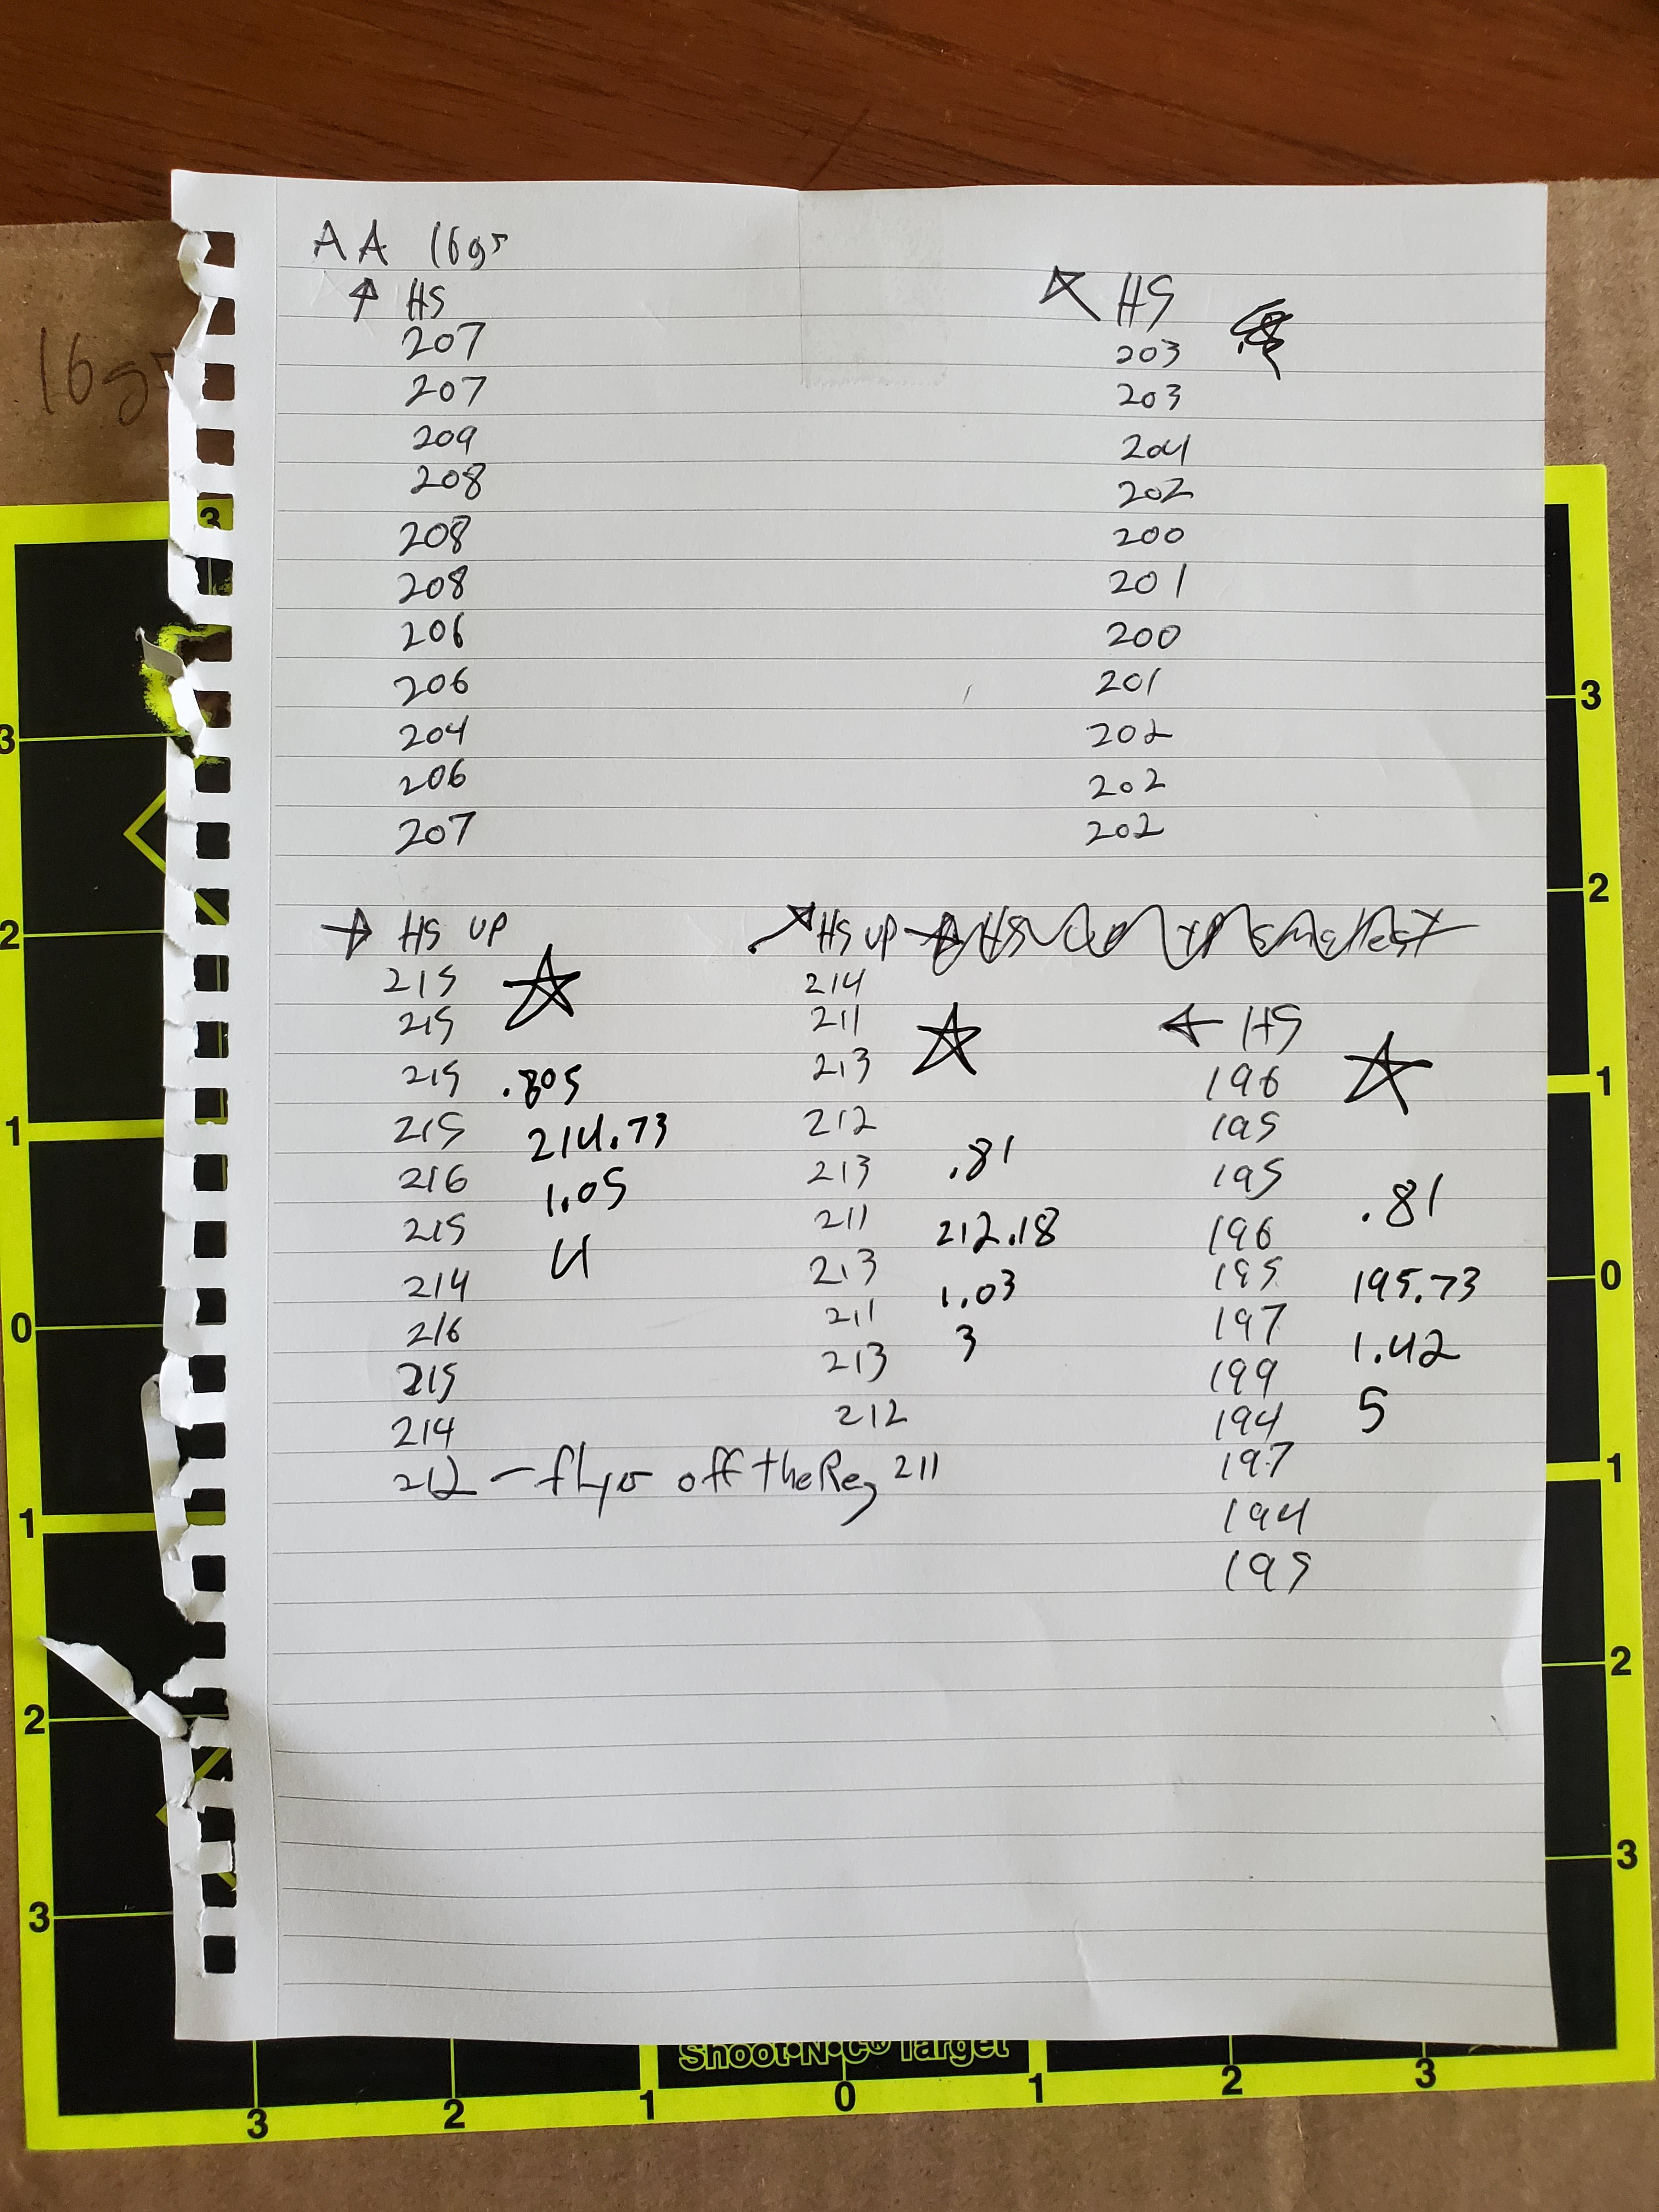 AA 16gr
↑ HS
207
207
209
208
208
208
206
206
204
206
207
↖ HS
203
203
204
202
200
201
200
201
202
202
202
→ HS UP
215
215
215
215
216
215
214
216
215
214
212 – flyer off the Reg
.805
214.73
1.05
4
↗ HS UP
214
211
213
212
213
211
213
211
213
212
211
.81
212.18
1.03
3
← HS
196
195
195
196
195
197
199
194
197
194
195
.81
195.73
1.42
5
16gr
3
3
2
1
0
1
2
3
3
2
1
0
1
2
3
Shoot•N•C® Target
3
2
1
0
1
2
3